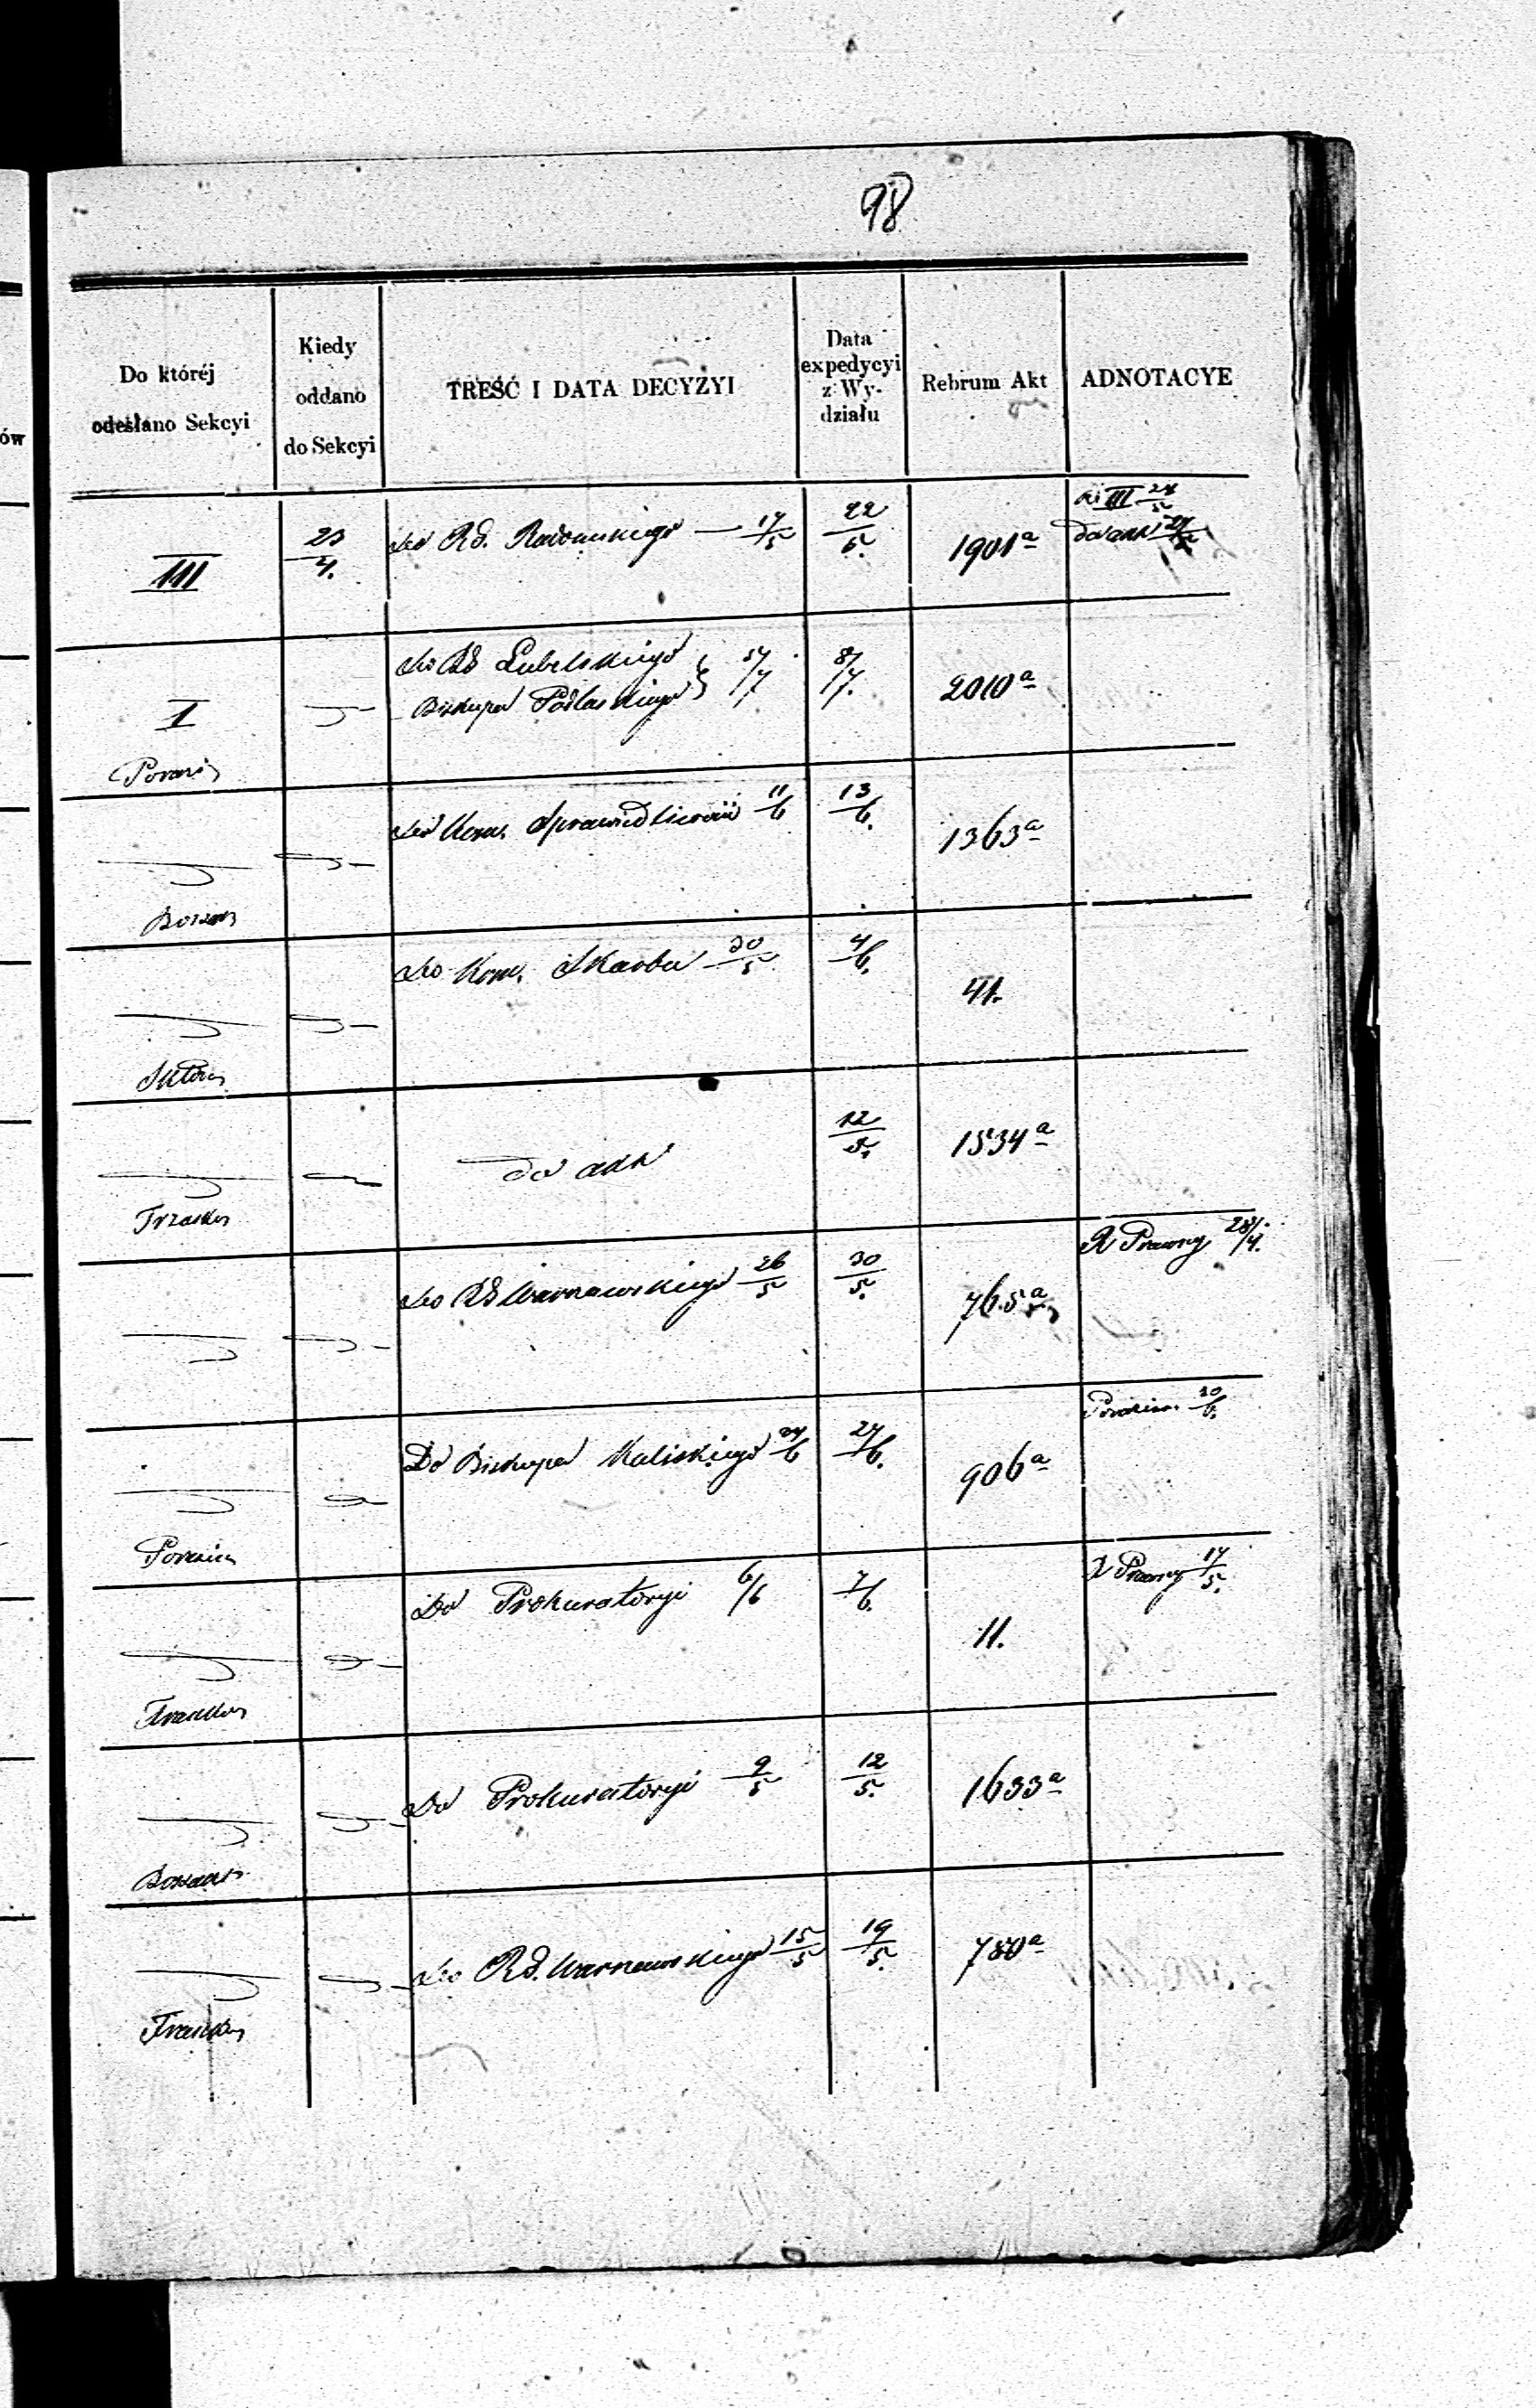 98
Do któréj odesłano Sekcyi
Kiedy oddano do Sekcyi
TREŚĆ I DATA DECYZYI
Data expedycyi z Wydziału
Rebrum Akt
ADNOTACYE
ów
III 23/4. Do Rd. Radomskiego — 17/5 22/5. 1901a III 24/5
do akt
I Do Rd Lubelskiego
Biskupa Podlaskiego } 5/7 8/7. 2010a
Do Kom. Sprawiedliwości 11/6 13/6. 1363a
Do Kom. Skarbu 30/5 4/6. 41.
do akt 12/5. 1534a
Trzaska
Do Rd Warszawskiego 26/5 30/5. 765a R Prawny 28/4.
Do Biskupa Kaliskiego 24/6 27/6. 906a 20/6.
Do Prokuratoryi 6/6 7/6. 11. R Prawny 17/5.
Do Prokuratoryi 9/5 12/5. 1633a
Do Rd. Warszawskiego 15/5 19/5. 780a